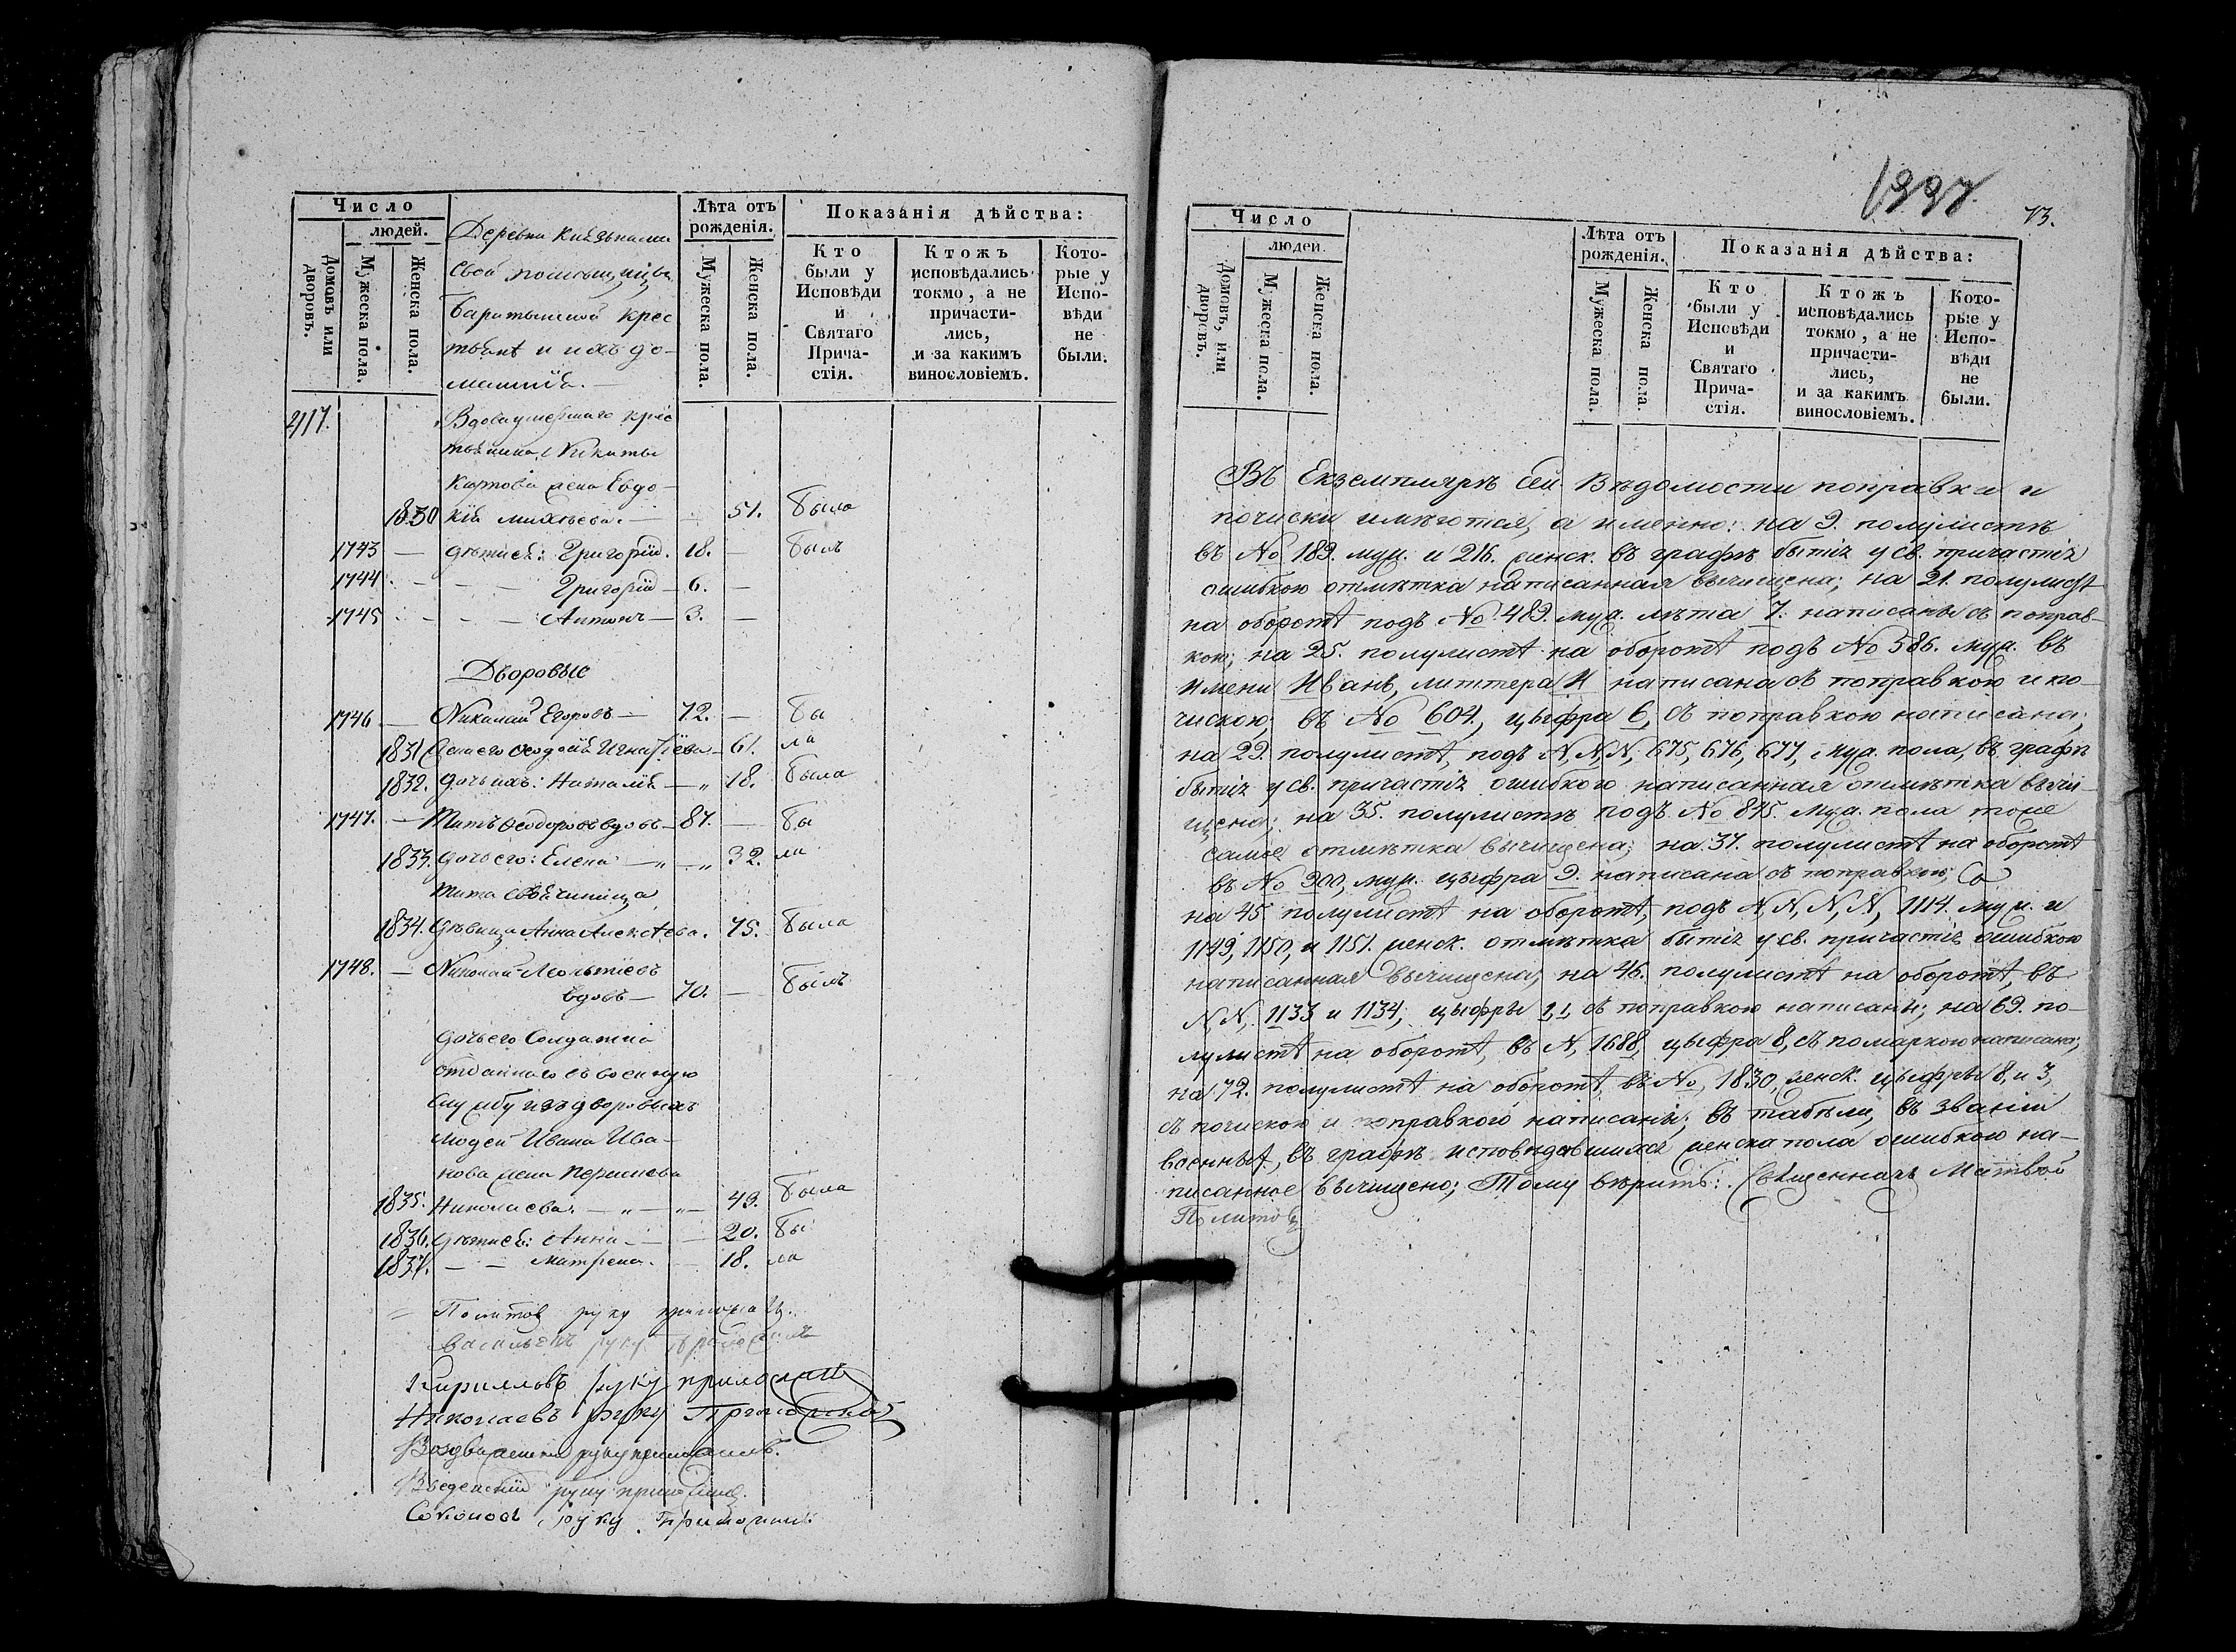 Число
людей.
Домовъ или дворовъ.
Мужеска пола.
Женска пола.
Лѣта отъ рожденія.
Мужеска пола.
Женска пола.
Показанія дѣйства:
Кто были у Исповѣди и Святаго Прича-стія.
Ктожъ исповѣдались токмо, а не причасти-лись, и за какимъ винословіемъ.
Кото-рые у Испо-вѣди не были.
Деревни
помѣщицы
крес
тьяне и ихъ до-
машнія.
217.
Вдова умершаго крес
тьянина Никиты
жена Евдо-
1830 кія 51. Была
1743 — дѣти ея: Григорій. 18. — былъ
1744 — — Григорій — 6. —
1745 — — Антонъ — 3. —
Дворовые
1746 — Николай Егоровъ — 72. — бы
1831 Жена его Феодосія Игнатіева — 61. ла
1832. дочь ихъ: Наталія — „ 18. была
1747. — Титъ Феодоровъ вдовъ — 87. — бы
1833. дочь его: Елена — „ — „ 32. ла
Тита
1834. дѣвица Анна Алексѣева. 75. была
1748. — Николай Леонтіевъ
вдовъ — 70. — былъ
дочь его Солдатка
отданнаго въ военную
службу изъ дворовыхъ
людей Ивана Ива-
нова жена
1835. Николаева. — „ — „ 49. была
1836. дѣти ея: Анна — — 20. бы
1837. — — Матрена. — 18. ла
Политовъ руку приложилъ.
Васильевъ руку приложилъ
Кирилловъ руку приложилъ
Николаевъ руку Приложилъ
Воздвиженскій руку приложилъ.
Введенскій руку приложилъ.
Соколовъ руку приложилъ
1337.
73.
Число
людей.
Домовъ, или дворовъ.
Мужеска пола.
Женска пола.
Лѣта отъ рожденія.
Мужеска пола.
Женска пола.
Показанія дѣйства:
Кто были у Исповѣди и Святаго Прича-стія.
Ктожъ исповѣдались токмо, а не причасти-лись, и за какимъ винословіемъ.
Кото-рые у Испо-вѣди не были.
Въ Екземплярѣ сей Вѣдомости поправки и
почиски имѣются, а именно: на 9. полулистѣ
въ № 189. муж. и 216. женск. въ графѣ бытія у св. причастія
ошибкою отмѣтка написанная вычищена; на 21. полулистѣ
на оборотѣ подъ № 489. муж. лѣта 7. написаны съ поправ-
кою; на 25. полулистѣ на оборотѣ подъ № 586. муж. въ
имени Иванъ, литтера И написана съ поправкою и по-
чискою; въ № 604., цыфра 6, съ поправкою написана;
на 29. полулистѣ, подъ N, N, N, 675, 676, 677, муж. пола, въ графѣ
бытія у св. причастія ошибкою написанная отмѣтка вычи-
щена; на 35. полулистѣ подъ № 875. муж. пола тоже
самое отмѣтка вычищена; на 37. полулистѣ на оборотѣ
въ № 900, муж. цыфра 9. написана съ поправкою;
на 45. полулистѣ на оборотѣ, подъ N, N, N, N, 1114. муж. и
1149, 1150, и 1151. женск. отмѣтка бытія у св. причастія ошибкою
написанная вычищена; на 46. полулистѣ на оборотѣ, въ
N N, 1133 и 1134; цыфры 1, 1, съ поправкою написаны; на 69. по-
лулистѣ на оборотѣ, въ N, 1688, цыфра 8, съ помаркою написана;
на 72. полулистѣ на оборотѣ, въ №, 1830, женск. цыфры 8, и 3,
съ почискою и поправкою написаны; въ табели, въ званіи
военныя, въ графѣ исповѣдавшихся женска пола ошибкою на-
писанное вычищено; Тому вѣрить: Священникъ Матвей
Политовъ